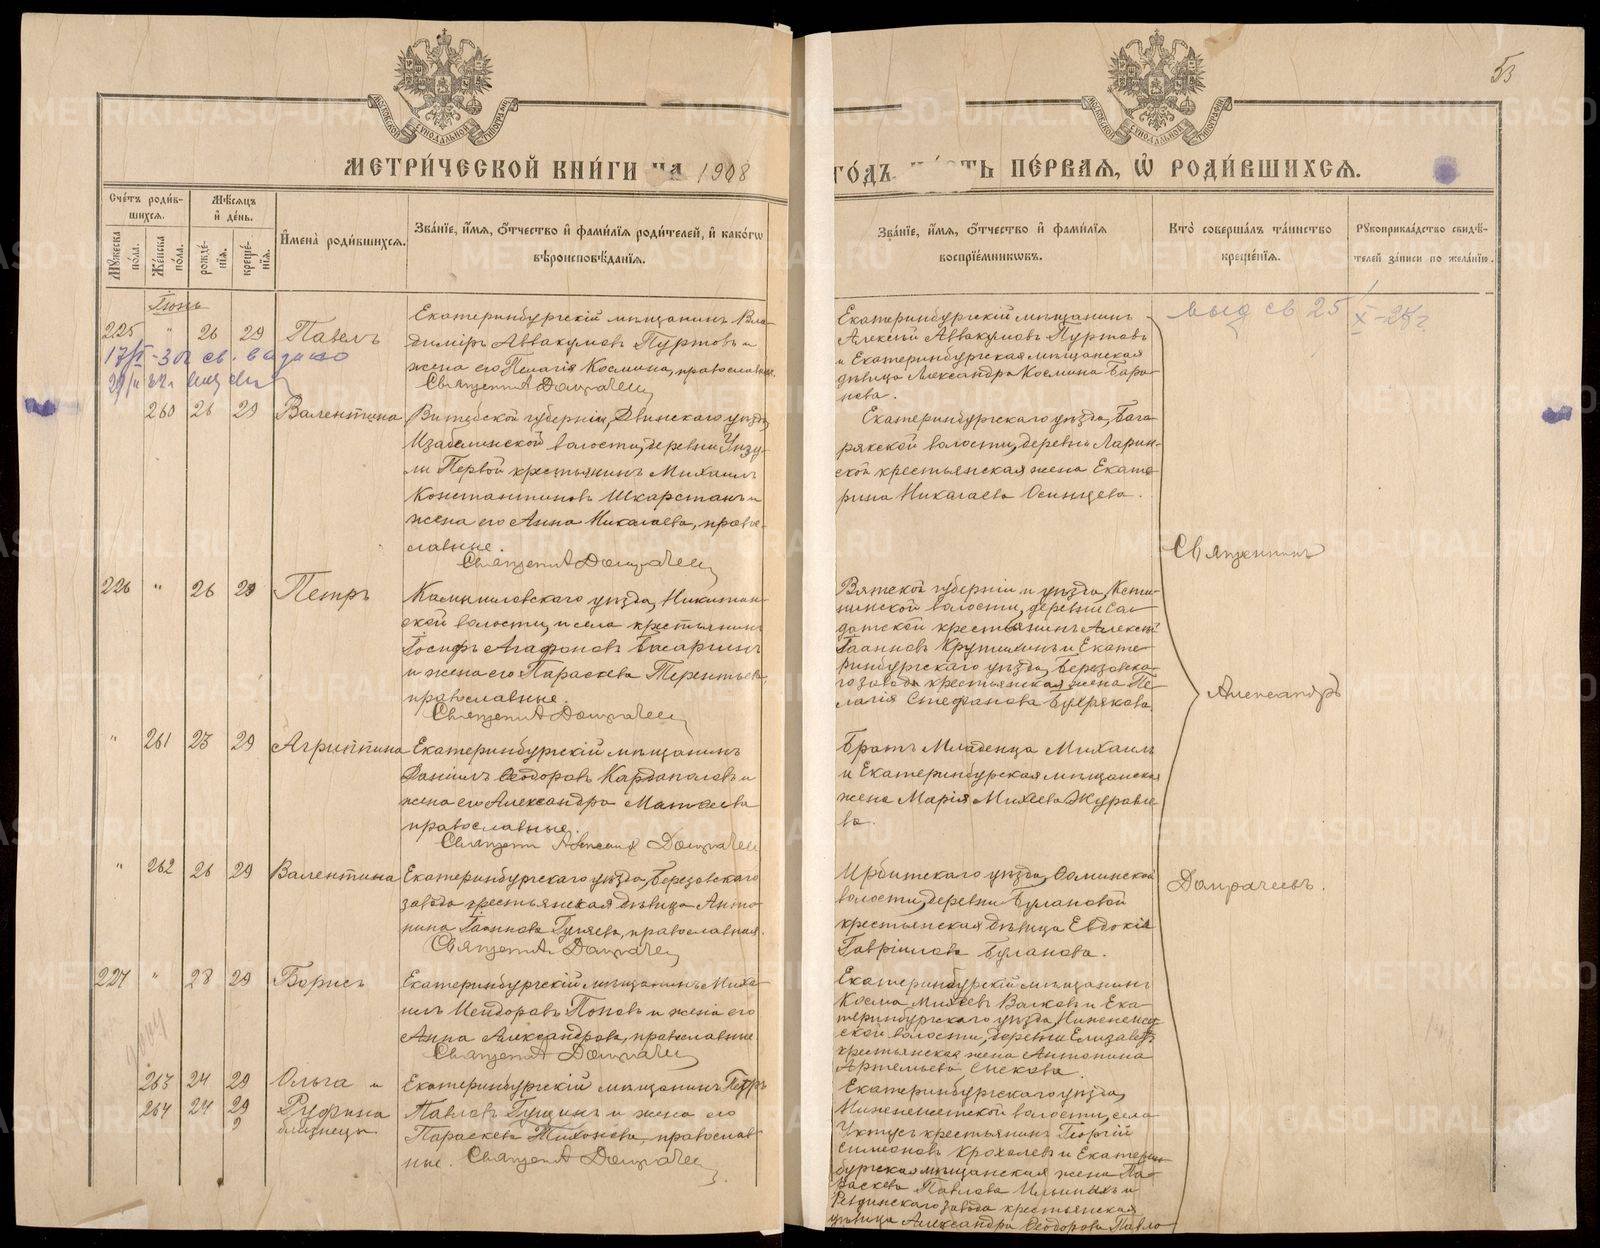 53
МОСКОВСКОЙ СУНОДАЛЬНОЙ ТИПОГРАФІИ
МОСКОВСКОЙ СУНОДАЛЬНОЙ ТИПОГРАФІИ
МЕТРИ́ЧЕСКОЙ КНИ́ГИ НА 1908
ГО́ДЪ ТЬ ПЕ́РВАЯ, Ѡ РОДИ́ВШИХСЯ.
Сче́тъ роди́в-
шихся.
Мужеска по́ла.
Же́нска по́ла.
Мѣ́сяцъ
и҆ де́нь.
рожде́-
нїя.
креще́-
нїя.
И҆мена̀ роди́вшихся.
Зва́нїе, и҆́мя, ѻ҆́тчество и҆ фами́лїя роди́телей, и҆ како́гѡ
вѣроисповѣ́данїя.
Зва́нїе, и҆́мя, ѻ҆́тчество и҆ фами́лїя
воспрїе́мникѡвъ.
Кто̀ соверша́лъ та́инство
креще́нїя.
Рꙋкоприкла́дство свидѣ́-
телей за́писи по жела́нїю.
Іюнь
225 " 26 29 Павелъ
Екатеринбургскій мѣщанинъ Вла-
димиръ Аввакумовъ Пуртовъ и
жена его Пелагія Космина, православные.
Священник А Домрачеев
Екатеринбургскій мѣщанинъ
Алексій Аввакумовъ Пуртовъ
и Екатеринбургская мѣщанская
дѣвица Александра Космина Бара-
нова.
выд св 25 X-28г.
260 26 29 Валентина
Витебской губерніи, Двинскаго уѣзда,
Изабелинской волости, деревни Унзу-
ли Первой крестьянинъ Михаилъ
Константиновъ Шкарстанъ и
жена его Анна Николаева, право-
славные.
Священник А Домрачеев
Екатеринбургскаго уѣзда, Бага-
рякской волости, деревни Ларин-
ской крестьянская жена Екате-
рина Николаева Осинцева.
Священникъ
226 " 26 29 Петръ
Камышловскаго уѣзда, Никитин-
ской волости, и села крестьянинъ
Іосифъ Агафоновъ Басаргинъ
и жена его Параскева Терентьева,
православные.
Священник А Домрачеев
Вятской губерніи и уѣзда,
волости, деревни Сол-
датской крестьянинъ Алексій
Іоанновъ Крупинъ и Екате-
ринбургскаго уѣзда, Березовска-
го завода крестьянская жена Пе-
лагія Стефанова Бухрякова.
Александръ
" 261 23 29 Агриппина
Екатеринбургскій мѣщанинъ
Даніилъ Ѳеодоровъ Кардаполовъ и
жена его Александра Матѳеева
православные.
Священник Александр Домрачеев
Братъ Младенца Михаилъ
и Екатеринбургская мѣщанская
жена Марія Михеева Журавле-
ва.
" 262 26 29 Валентина
Екатеринбургскаго уѣзда, Березовскаго
завода крестьянская дѣвица Анто-
нина Іоаннова Гуляева, православная.
Священник А Домрачеев
Ирбитскаго уѣзда,
волости, деревни Булановой
крестьянская дѣвица Евдокія
Гавріилова Буланова.
Домрачеевъ.
227 " 28 29 Борисъ
Екатеринбургскій мѣщанинъ Миха-
илъ Исидоровъ Поповъ и жена его
Анна Александрова, православные
Священник А Домрачеев
Екатеринбургскій мѣщанинъ
Косма Михеевъ Волковъ и Ека-
теринбургскаго уѣзда, Нижнеисет-
ской волости, деревни Елизаветъ
крестьянская жена Антонина
Артемьева Съскова.
263 24 29 Ольга и
264 24 29 Руфина
близнецы
Екатеринбургскій мѣщанинъ Петръ
Павловъ Гущинъ и жена его
Параскева Тихонова, православ-
ные. Священник А Домрачеев
Екатеринбургскаго уѣзда,
Нижнеисетской волости, села
Уктусъ крестьянинъ Георгій
Симеоновъ Крохалевъ и Екатерин-
бургская мѣщанская жена Па-
раскева Павлова Ильиныхъ и
Ревдинскаго завода крестьянская
дѣвица Александра Ѳеодорова Павло-
METRIKI.GASO-URAL.RU